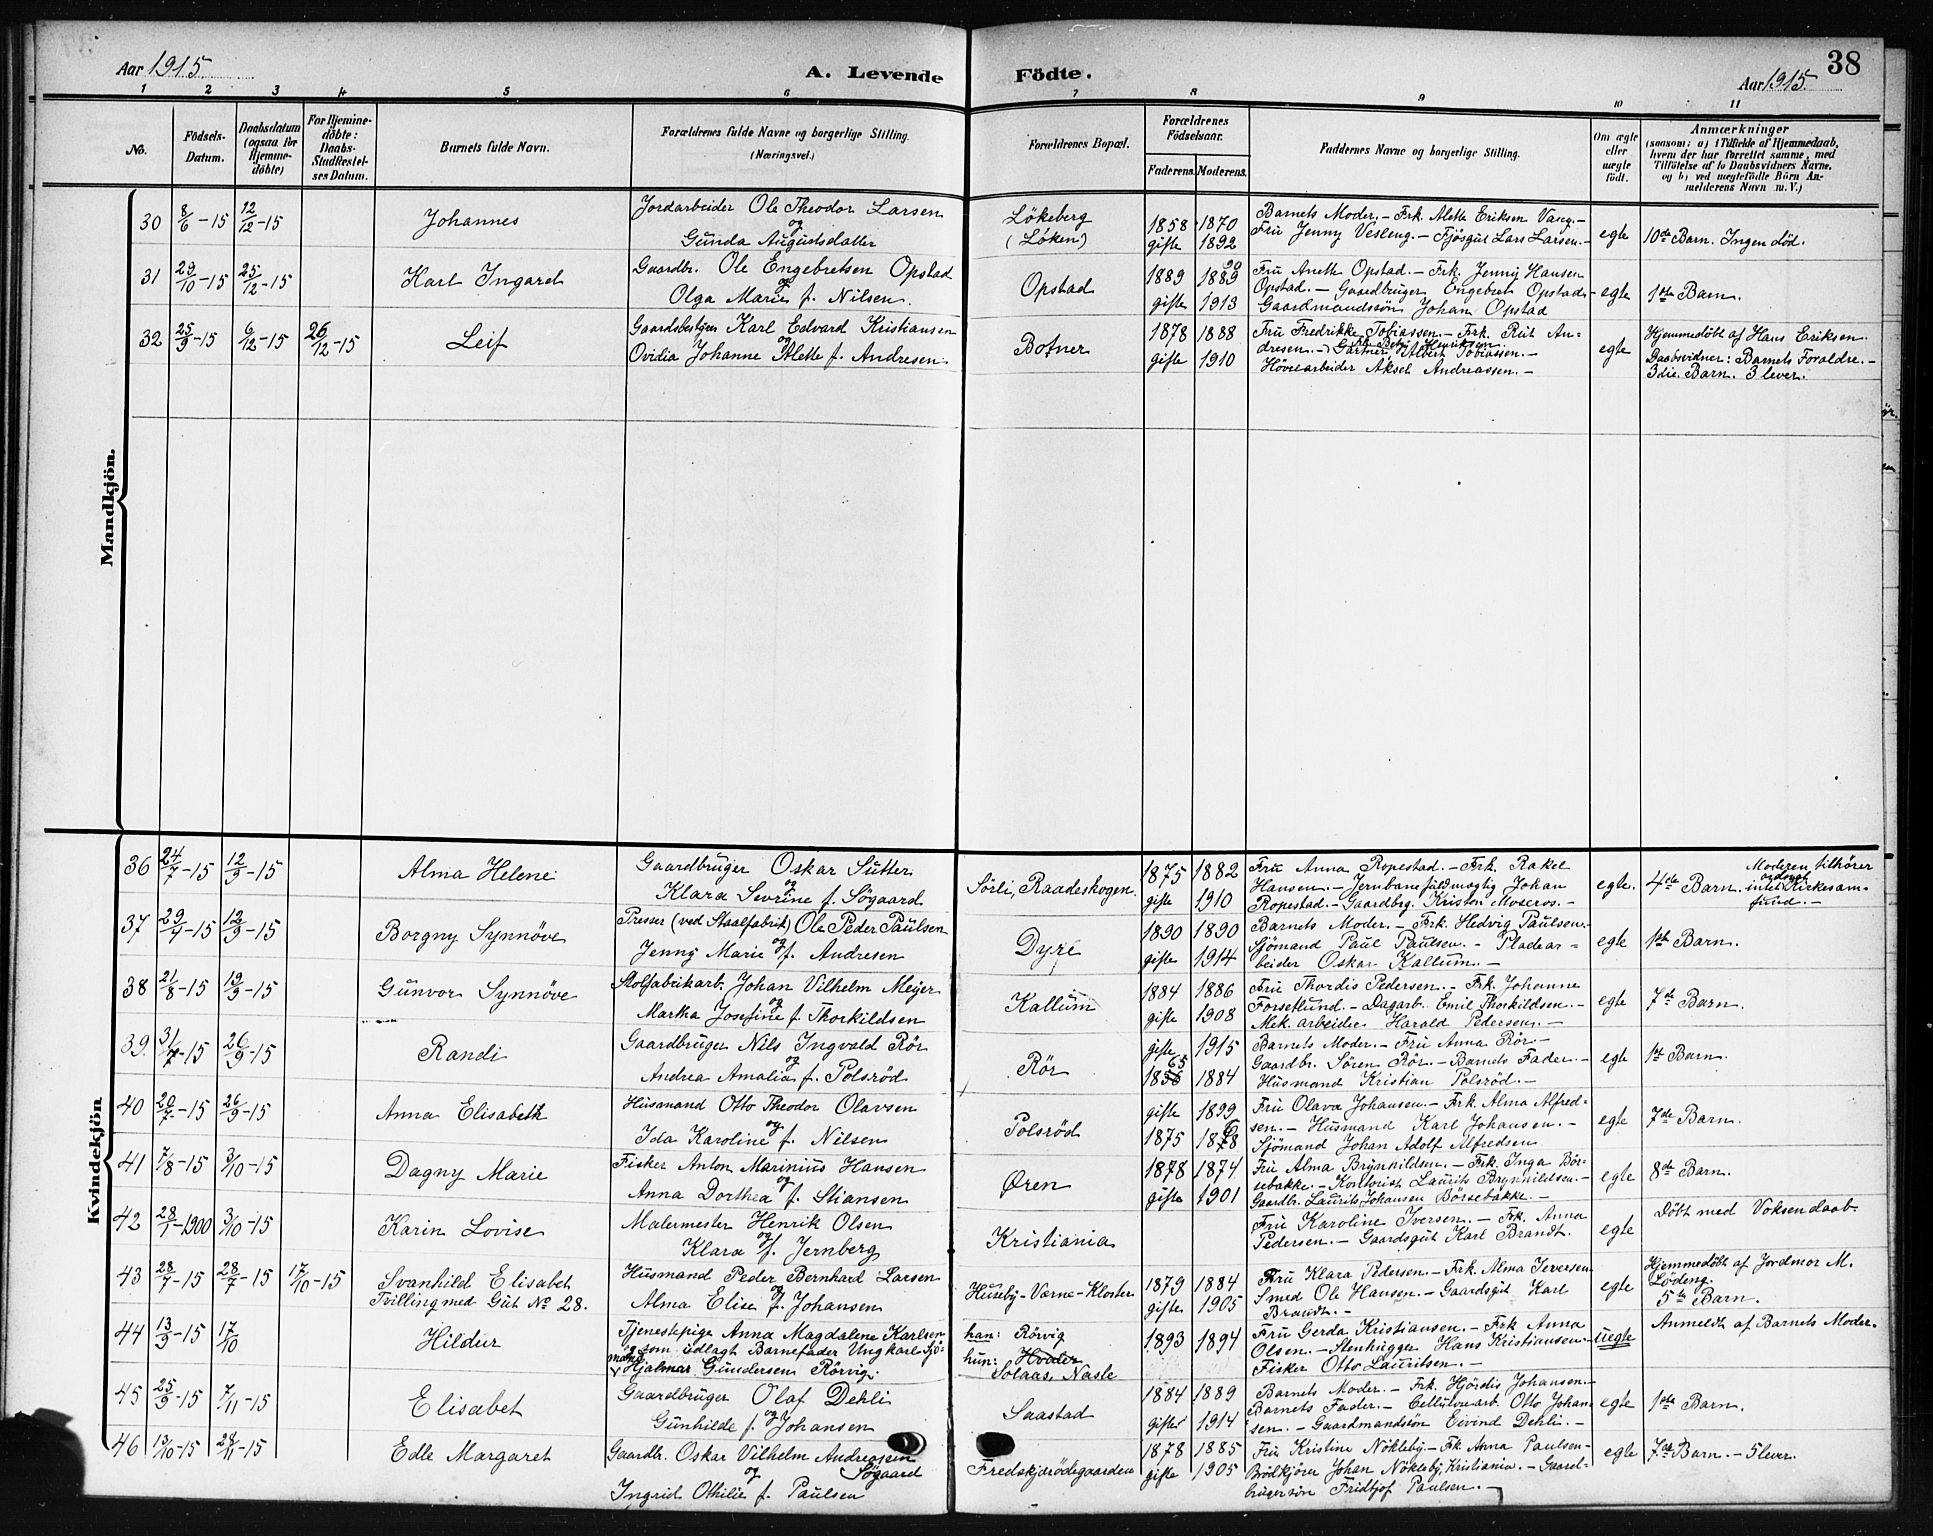 Aar 1915.
A. Levende Födte.
38
Aar 1915.
1 2 3 4 5 6 7 8 9 10 11
No.
Födsels-Datum.
Daabsdatum (ogsaa for Hjemme-döbte)
For Hjemme-döbte: Daabs-Stadfæstel-ses Datum.
Barnets fulde Navn.
Forældrenes fulde Navne og borgerlige Stilling.
(Næringsvei.)
Forældrenes Bopæl.
Forældrenes Födselsaar.
Faderens. Moderens.
Faddernes Navne og borgerlige Stilling.
Om ægte eller uægte födt.
Anmærkninger
(saasom: a) i Tilfælde af Hjemmedaab, hvem der har forrettet samme, med Tilföielse af to Daabsvidners Navne, og b) ved uægtefödte Börn An-melderens Navn m. V.)
Mandkjön.
30 8/6-15 12/12-15 Johannes
Jordarbeider Ole Theodor Larsen
og
Gunda Augustsdatter
Lökeberg
(Löken)
1858 1870
gifte 1892
Barnets Moder. - Frk. Alette Eriksen Vang. -
Fru Jenny Vesleng. - Fjösgut Lars Larsen. -
egte
10de Barn. Ingen död.
31 29/10-15 25/12-15 Karl Ingard
Gaardbr. Ole Engebretsen Opstad
og
Olga Marie f. Nilsen.
Opstad
1889 1889 90
gifte 1913
Fru Anette Opstad. - Frk. Jenny Hansen
Opstad. - Gaardbruger Engebret Opstad. -
Gaardmandssön Johan Opstad
egte
1ste Barn.
32 25/9-15 6/12-15 26/12-15 Leif
Gaardsbestyrer Karl Edvard Kristiansen
og
Ovidia Johanne Alette f. Andresen.
Botner
1878 1888
gifte 1910
Fru Fredrikke Tobiassen. - Frk. Rut An-
dresen. - Frk. Betzy Henriksen.
Gartner Albert Tobiassen. -
Hövlearbeider Aksel Andreassen. -
egte
Hjemmedöbt af Hans Eriksen.
Daabsvidner: Barnets Foraldre. -
3die Barn. 3 lever.
Kvindekjön
36 24/7-15 12/9-15 Alma Helene
Gaardbruger Oskar Sutter
og
Klara Sevrine f. Sögaard
Sörli, Raadeskogen.
1875 1882
gifte 1910
Fru Anna Ropestad. - Frk. Rakel
Hansen. - Jernbanefuldmægtig Johan
Ropestad. - Gaardbrg. Kristen Moseros. -
egte.
4de Barn.
Moderen tilhörer
ordnet
intet Kirkesam-
fund. -
37 29/7-15 12/9-15 Borgny Synnöve
Presser (ved Staalfabrik) Ole Peder Paulsen
og
Jenny Marie f. Andresen
Dyre
1890 1890
gifte 1914
Barnets Moder. - Frk. Hedvig Paulsen.
Sjömand Paul Paulsen. - Pladear-
beider Oskar Kallum. -
egte
1ste Barn.
38 21/8-15 19/9-15 Gunvor Synnöve
Stolfabrikarb. Johan Vilhelm Meyer
og
Martha Josefine f. Thorkildsen
Kallum
1884 1886
gifte 1908
Fru Thordis Pedersen. - Frk. Johanne
Forsetlund. - Dagarb. Emil Thorkildsen. -
Mek. arbeider Harald Pedersen. -
egte
7de Barn.
39. 31/7-15 26/9-15 Randi
Gaardbruger Nils Ingvald Rör
og
Andrea Amalia f. Polsröd
Rör
gifte 1915
65
1856 1884
Barnets Moder. - Fru Anna Rör. -
Gaardbr. Sören Rör. - Barnets Fader. -
Husmand Kristian Polsröd. -
egte
1ste Barn.
40 20/7-15 26/9-15 Anna Elisabeth
Husmand Otto Theodor Olavsen
og
Ida Karoline f. Nilsen
Polsröd
gifte 1899
1875 1878
Fru Olava Johansen. - Frk. Alma Alfred-
sen. - Husmand Karl Johansen. -
Sjömand Johan Adolf Alfredsen
egte
7de Barn.
41 7/8-15 3/10-15 Dagny Marie
Fisker Anton Marinius Hansen
og
Anna Dorthea f. Stiansen
Øren
1878 1874
gifte 1901
Fru Alma Brynhildsen. - Frk. Inga Bör-
sebakke. - Kontorist Laurits Brynhildsen. -
Gaardbr. Laurits Johansen Börsebakke. -
egte
8de Barn.
42 28/7-1900 3/10-15 Karin Lovise
Malermester Henrik Olsen
og
Klara f. Jernberg
Kristiania
Fru Karoline Iversen. - Frk. Anna
Pedersen. - Gaardsgut Karl Brandt.
egte
Döbt med Voksendaab.
43 28/7-15 28/7-15 17/10-15 Svanhild Elisabet
Tvilling med Gut No 28.
Husmand Peder Bernhard Larsen
og
Alma Elise f. Johansen
Huseby-Værne-Kloster
1879 1884
gifte 1905
Fru Klara Pedersen. - Frk. Alma Iversen
Smed Ole Hansen. - Gaardsgut Karl
Brandt. -
egte
Hjemmedöbt af Jordmor M.
Lödeng.
5te Barn.
44 13/9-15 17/10 Hildur
Tjenestepige Anna Magdalene Karlsen
og som udlagt Barnefader Ungkarl Sjö-
mand Hjalmar Gundersen Rörvig.
han: Rörvig
hun: Hvidsr
Solaas, Nasle
1893 1894
Fru Gerda Kristiansen. - Frk Anna
Olsen. - Stenhugger Hans Kristiansen. -
Fisker Otto Lauritsen. -
uegte
Anmeldt af Barnets Moder.
45 25/9-15 7/11-15 Elisabet
Gaardbruger Olaf Dehli
og
Gunhilde f. Johansen
Saastad
1884 1889
gifte 1914
Barnets Moder. - Frk. Hjördis Johansen. -
Barnets Fader. - Cellulosearb. Otto Johan-
sen. - Gaardmandssön Eivind Dehli. -
egte
1ste Barn.
46 13/10-15 28/11-15 Edle Margaret
Gaardb. Oskar Vilhelm Andreassen
og Sögaard
Ingrid Othilie f. Paulsen
Fredskjærödegaarden
1878 1885
gifte 1905
Fru Kristine Nökleby. - Fr. Anna Paulsen -
Brödkjörer Johan Nökleby, Kristiania. - Gaard-
brugersön Fridtjof Paulsen. -
egte
7de Barn. - 5 lever.